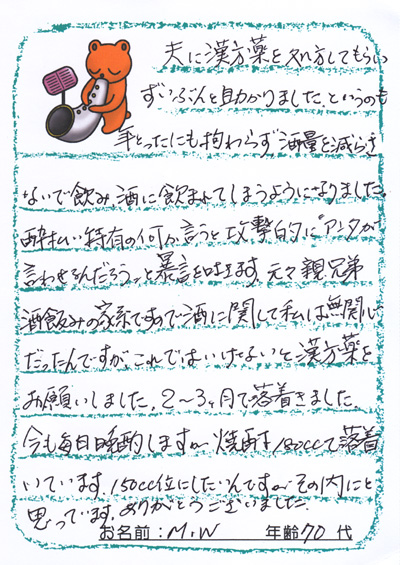 夫に漢方薬を処方してもらい
ずいぶんと助かりました、というのも
年とったにも拘わらず酒量を減らさ
ないで飲み、酒に飲まれてしまうようになりました。
酔払い特有の何か言うと攻撃的に"アンタが
言わせるんだろうっと暴言を吐きます。元々親兄弟
酒飲みの家系ですので酒に関して私は無関心
だったんですが、これではいけないと漢方薬を
お願いしました。2〜3ヶ月で落着きました。
今も毎日晩酌しますが焼酎180ccで落着
いています。150cc位にしたいんですがその内にと
思っています。ありがとうございました。
お名前:M.W 年齢70代